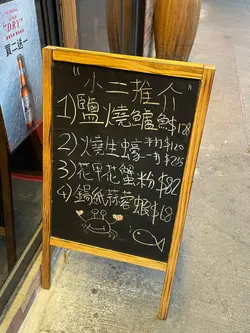 "DRY"
買二送一
"小二推介"
1)鹽燒鱸魚$128
2)燒生蠔 半打$120 一打$235
3)花甲花蟹粉$82
4)錫紙蒜蓉蝦$68